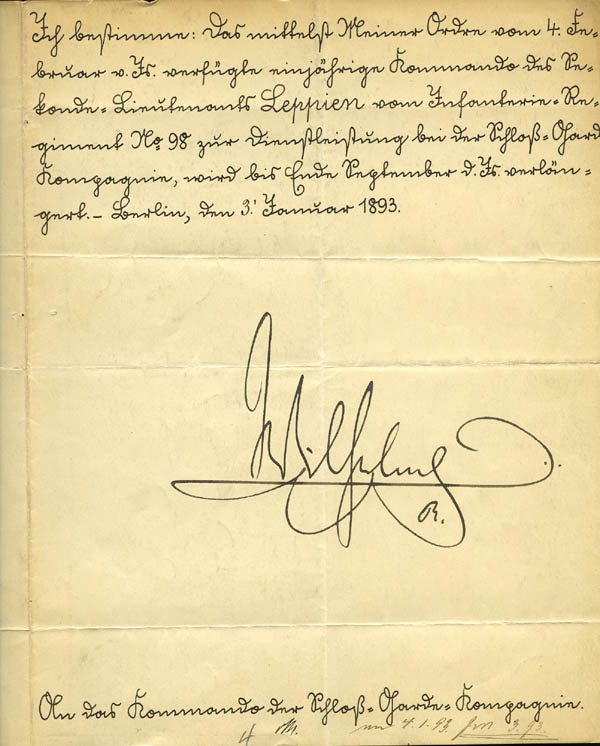 Ich bestimme: Das mittelst Meiner Ordre vom 4. Fe-
bruar v. Js. verfügte einjährige Kommando des Se-
konde-Lieutenants Leppien vom Infanterie-Re-
giment No 98 zur Dienstleistung bei der Schloß-Gard
Kompagnie, wird bis Ende September d. Js. verlän-
gert. – Berlin, den 3' Januar 1893.
Wilhelm
R.
An das Kommando der Schloß-Garde-Kompagnie.
4.1.93. 3.93.